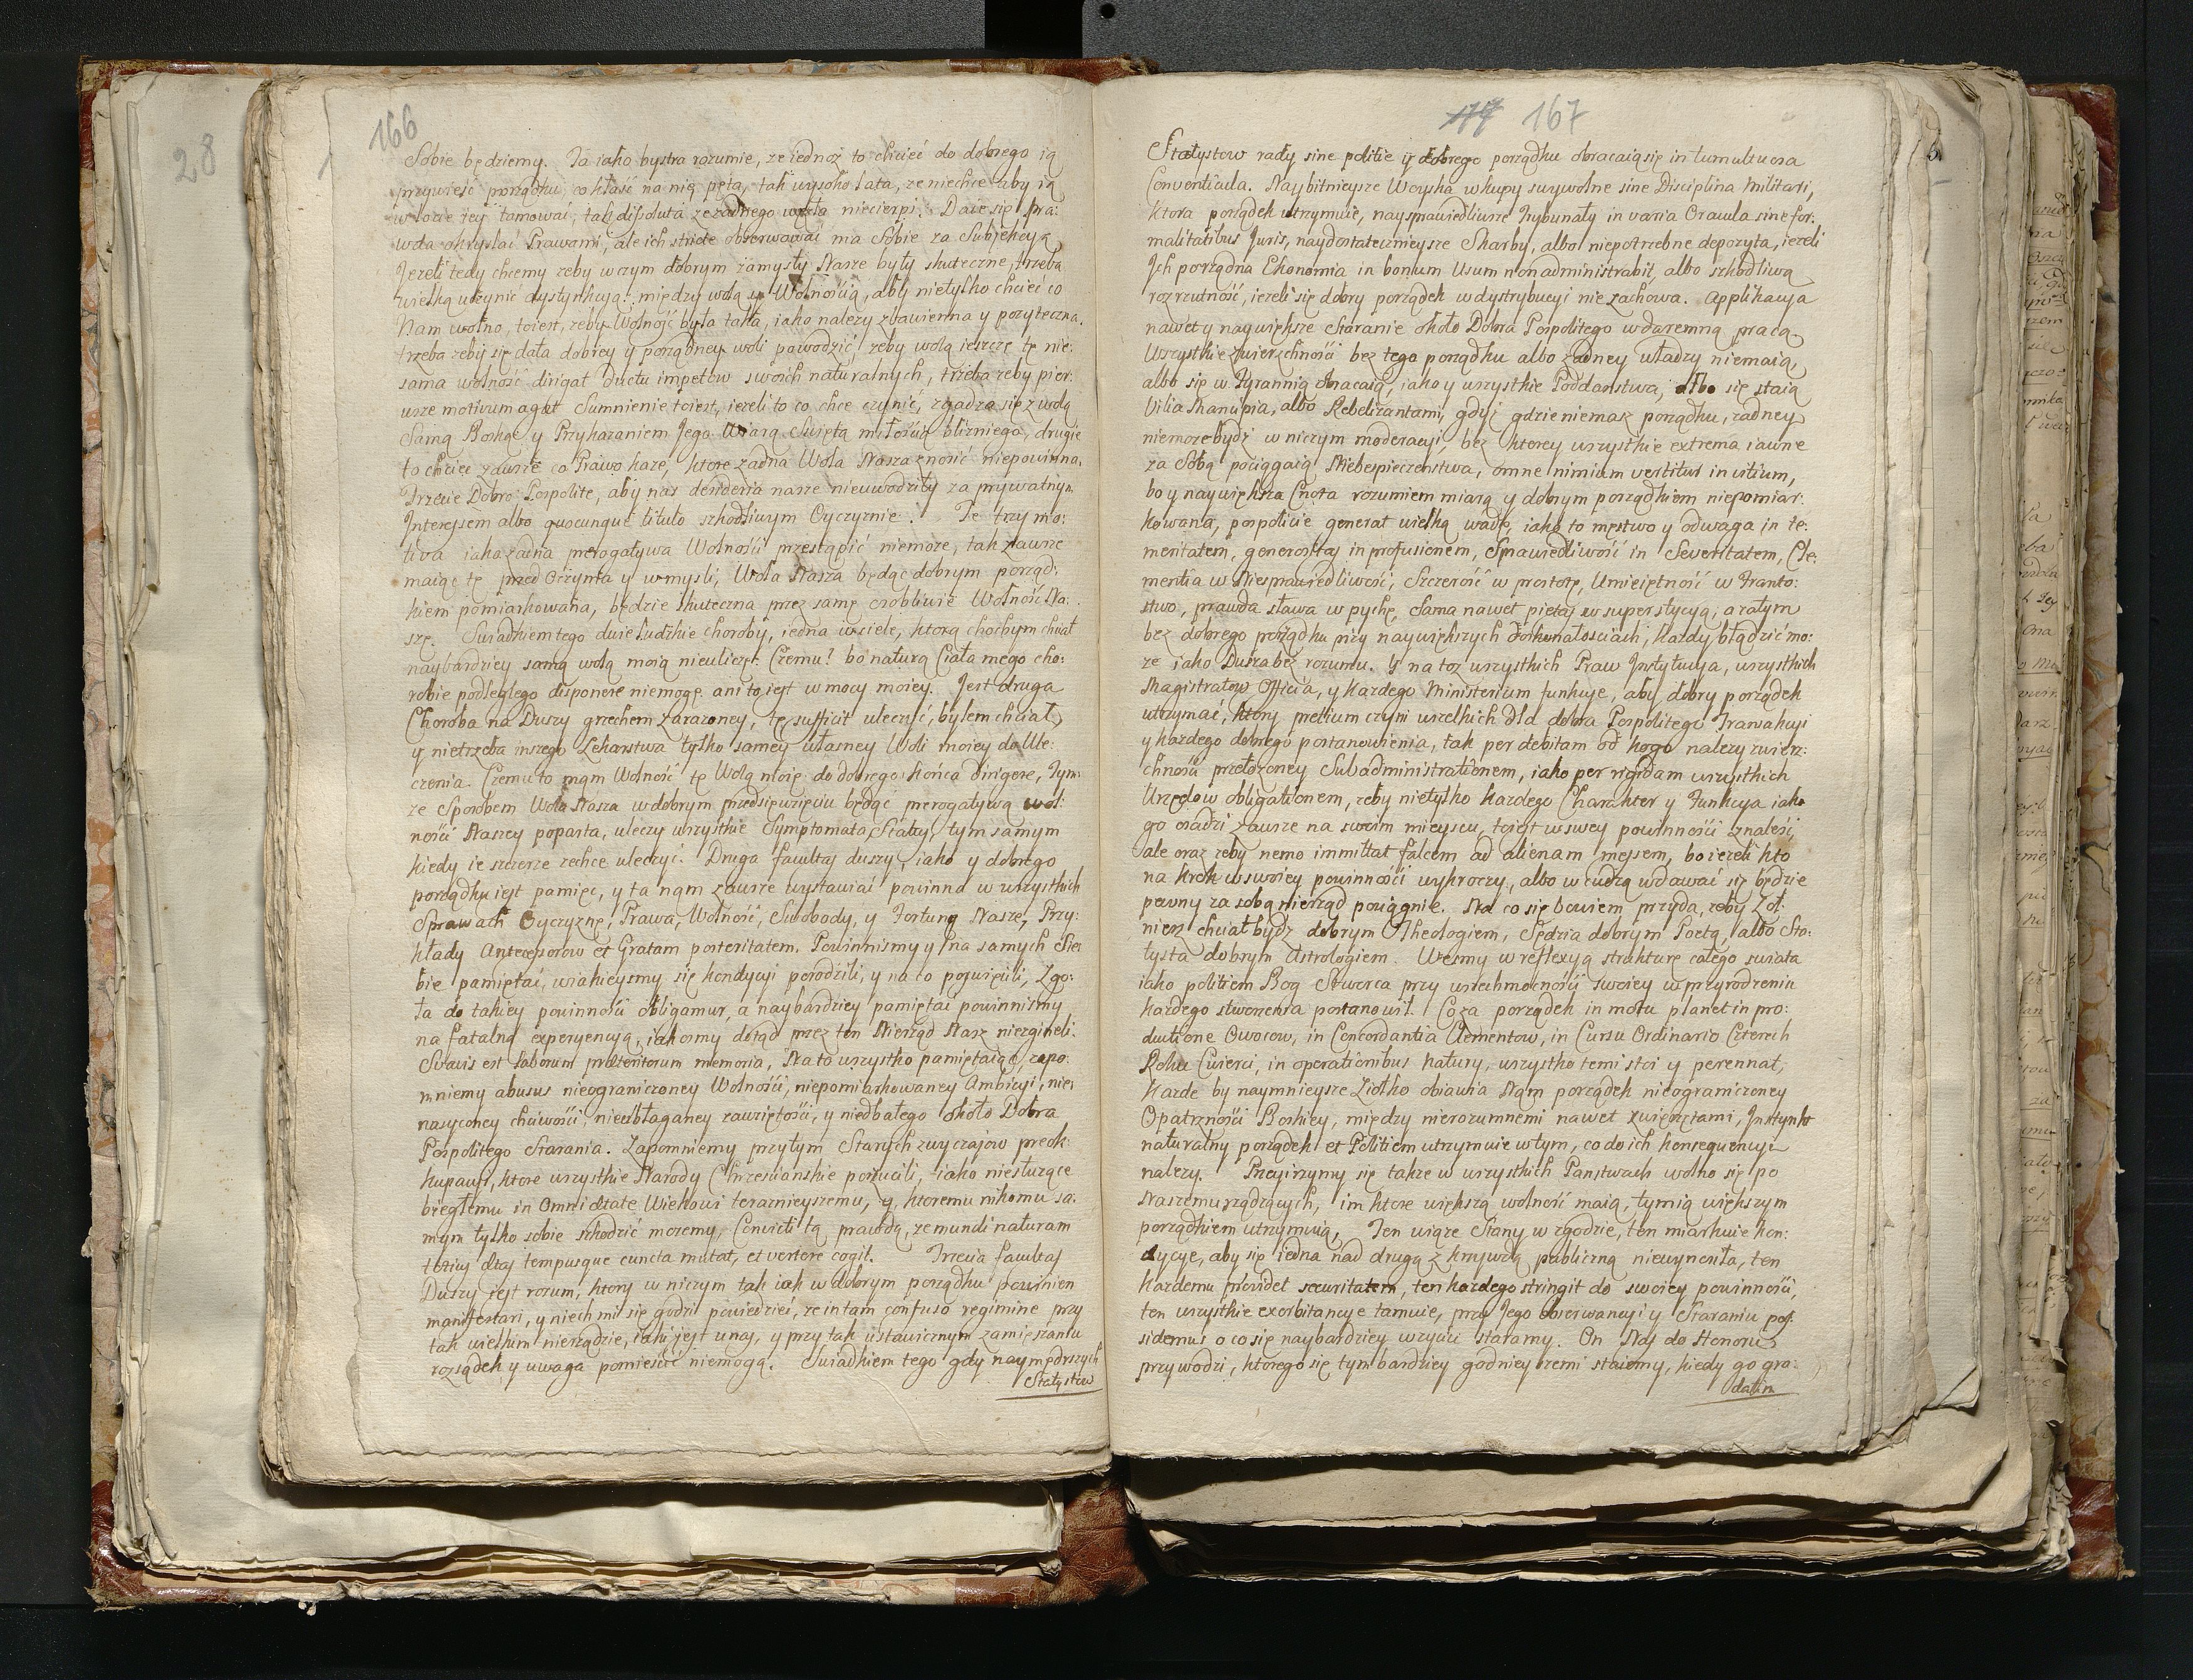 28
166
Sobie będziemy. Ta iako bystra rozumie, ze iednoż to chcieć do dobrego ią
przywieść porządku, co kłaść na nię pęta, tak wysoko lata, ze niechce aby ią
w locie iey tamować, tak dissoluta ze zadnego nie cierpi. Daie się pra:
wda okryślać Prawami, ale ich stricte obserwować ma Sobie za Subjekcyą
Jezeli tedy chcemy zeby w czym dobrym zamysły Nasze były skuteczne, trzeba
wielką uczynić dystynkcyą: między wolą y Wolnością, aby nietylko chcieć co
Nam wolno, toiest, zeby Wolność była taka, iako nalezy zbawienna y pozyteczna.
trzeba zeby się dała dobrey y porządney woli powodzić, zeby wolą ieszcze tę nie:
sama wolność dirigat ductu impetow swoich naturalnych, trzeba zeby pier:
wsze motivum agat Sumnienie toiest, iezeli to co chce czynić, zgadza się z wolą
Samą Boską y Przykazaniem Jego Wiarą Swiętą miłością bliźniego, drugie
to chciec zawsze co Prawo kaze, ktore zadna Wola Nasza znosić niepowinna,
Trzecie Dobro Pospolite, aby nas desideria nasze nieuwodziły za prywatnym
Interessem albo quocunque titulo szkodliwym Oyczyznie. Te trzy mo:
tiva iako zadna prerogatywa Wolności przestąpić niemoze, tak zawsze
maiąc te przed Oczyma y w mysli, Wola Nasza będąc dobrym porząd:
kiem pomiarkowana, będzie skuteczna przez samę osobliwie Wolność Na:
szę. Swiadkiem tego dwie ludzkie choroby, iedna w ciele, ktorą choćbym chciał
naybardziey samą wolą moią nieuliczę: Czemu? bo naturą Ciała mego cho:
robie podległego disponere niemogę. ani to iest w mocy moiey. Jest druga
Choroba na Duszy grzechem zarazoney, tę sufficit uleczyć, bylem chciał,
y nietrzeba inszego Lekarstwa tylko samey własney Woli moiey do Ule:
czenia. Czemu to mam Wolność tę Wolą moię do dobrego końca dirigere, Tym
ze Sposobem Wola Nasza w dobrym przedsięwzięciu będąc prerogatywą wol:
ności Naszey poparta, uleczy wszystkie Symptomata Statûs, tym samym
kiedy ie szczerze zechce uleczyć. Druga facultas duszy, iako y dobrego
porządku iest pamięc, y ta nam zawsze wystawiać powinna w wszystkich
Sprawach Oyczyznę, Prawa, Wolność, Swobody, y Fortunę Naszę, Przy:
kłady Antecessorow et Gratam posteritatem. Powinnismy y na samych Sie
bie pamiętać, w iakieysmy się kondycyi porodzili, y na co poswięcili, Zgo:
ła do takiey powinności obligamur, a naybardziey pamiętać powinnismy
na fatalną experyencyą, iakosmy dotąd przez ten Nierząd Nasz niezgineli.
Suavis est laborum praeteritorum memoria, Na to wszystko pamiętaiąc, zapo:
mniemy abusus nieograniczoney Wolności, niepomiarkowaney Ambicyi, nie
nasyconey chciwości, nieubłaganey zawziętości, y niedbałego około Dobra
Pospolitego Starania. Zapomniemy przytym Starych zwyczajow preok:
kupacyi, ktore wszystkie Narody Chrzesciańskie porzuciły, iako niesłuzące
biegłemu in omni aetate Wiekowi teraznieyszemu, y ktoremu nikomu sa:
mym tylko sobie szkodzić mozemy, Convicti tą prawdą, ze mundi naturam
totius aetas tempusque cuncta mutat, et vertere cogit. Trzecia facultas
Duszy iest rozum, ktory w niczym tak iak w dobrym porządku powinien
manifestari, y niech mi się godzi powiedzieć, ze in tam confuso regimine przy
tak wielkim nierządzie, iaki jest u nas, y przy tak ustawicznym zamięszaniu
rozsądek y uwaga pomieścić niemogą. Swiadkiem tego gdy naymędrszych
Statystow
167
Statystow rady sine politie y dobrego porządku obracaią się in tumultuosa
Conventicula. Naybitnieysze Woyska w kupy swywolne sine Disciplina Militari,
ktora porządek utrzymuie, naysprawiedliwsze Trybunały in varia Oracula sine for:
malitatibus Juris, naydostatecznieysze Skarby, albo niepotrzebne depozyta, iezeli
Ich porządna Ekonomia in bonum usum non administrabit, albo szkodliwą
rozrzutność, iezeli się dobry porządek w dystrybucyi nie zachowa. Applikacya
nawet y naywiększe staranie około Dobra Pospolitego w daremną pracą.
Wszystkie zwierzchności bez tego porządku albo zadney władzy niemaią,
albo się w Tyrannią obracaią, iako y wszystkie Poddaństwa, albo się staią
Vilia Mancipia, albo Rebelizantami, gdyż gdzie niemasz porządku, zadney
niemoze bydź w niczym moderacyi, bez ktorey wszystkie extrema iawne
za sobą pociągaią Niebespieczenstwa, omne nimium vertitur in vitium,
bo y naywiększa Cnota rozumiem miarą y dobrym porządkiem niepomiar:
kowana, pospolicie generat wielką wadę, iako to męstwo y odwaga in te:
meritatem, generositas in profusionem, Sprawiedliwość in Severitatem, Cle:
mentia w Niesprawiedliwość, Szczerość w prostotę, Umieiętność w Franto:
stwo, prawda sława w pychę, Sama nawet pietas w superstycyą, a zatym
bez dobrego porządku przy naywiększych doskonałosciach, Kazdy błądzić mo:
ze iako Dusza bez rozumu. Y na toz wszystkich Praw Instytucya, wszystkich
Magistratow Officia, y Kazdego Ministerium funkcye, aby dobry porządek
utrzymać, ktory pretium czyni wszelkich dla dobra Pospolitego Tranzakcyi
y kazdego dobrego postanowienia, tak per debitam od kogo nalezy zwierz:
chności przełozoney Subadministrationem, iako per rigidam wszystkich
Urzędow obligationem, zeby nietylko kazdego Charakter y Funkcya iako
go osadzi zawsze na swoim mieyscu, toiest w swey powinności znaleść,
ale oraz zeby nemo immittat falcem ad alienam messem, bo iezeli kto
na krok w swoiey powinności wykroczy, albo w cudzą wdawać się będzie
pewny za sobą nierząd pociągnie. Na co się bowiem przyda, zeby Zoł:
nierz chciał bydź dobrym Theologiem, Sędzia dobrym Poetą, albo Sta:
tysta dobrym Astrologiem. Wezmy w reflexyą strukturę całego swiata
iako politiem Bog Stworca przy wszechmocności swoiey w przyrodzeniu
kazdego stworzenia postanowił. Co za porządek in motu planet in pro:
ductione Owocow, in Concordantia Elementow, in Cursu Ordinario Czterech
Roku Cwierci, in operationibus natury, wszystko temi stoi y perennat,
Kazde by naymnieysze Ziołko obiawia Nam porządek nieograniczoney
Opatrzności Boskiey, między nierozumnemi nawet zwięrzętami, Instynkt
naturalny porządek et Politiem utrzymuie w tym, co do ich konsequencyi
nalezy. Przyirzymy się takze w wszystkich Panstwach wolno się po
Naszemu rządzących, im ktore większą wolność maią, tym ią większym
porządkiem utrzymuią, Ten wiąze Stany w zgodzie, ten miarkuie kon:
dycye, aby się iedna nad drugą z krzywdą publiczną niewynosiła, ten
kazdemu providet securitatem, ten kazdego stringit do swoiey powinności,
ten wszystkie exorbitancye tamuie, przy Jego obserwancyi y Staraniu pos:
sidemus o co się naybardziey wzyciu staramy. On Nas do Honoru
przywodzi, ktorego się tym bardziey godnieyszemi staiemy, kiedy go gra:
datim